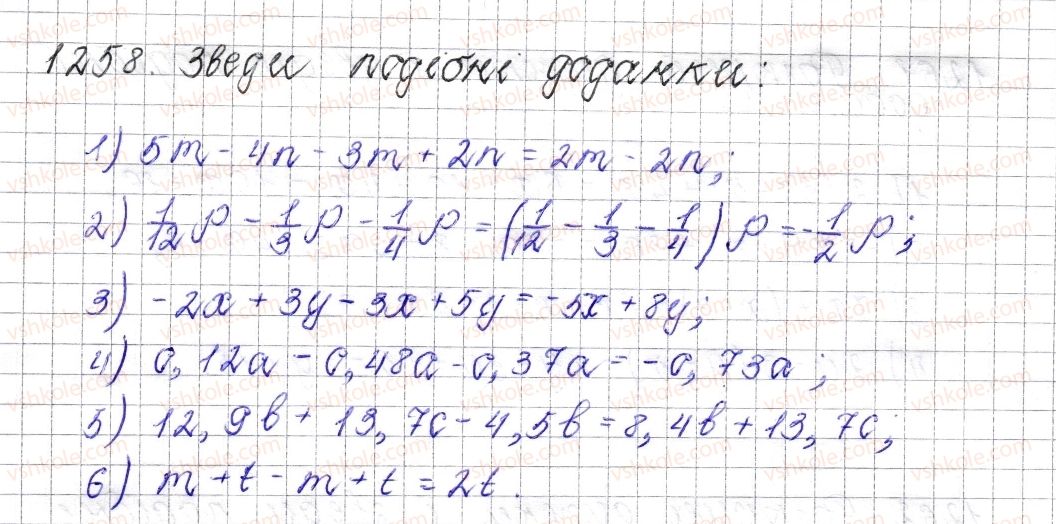 1258. Зведи подібні доданки:
1) 5m - 4n - 3m + 2n = 2m - 2n;
2) 1/12 p - 1/3 p - 1/4 p = (1/12 - 1/3 - 1/4) p = -1/2 p;
3) -2x + 3y - 3x + 5y = -5x + 8y;
4) 0,12a - 0,48a - 0,37a = -0,73a;
5) 12,9b + 13,7c - 4,5b = 8,4b + 13,7c;
6) m + t - m + t = 2t.
vshkole.com